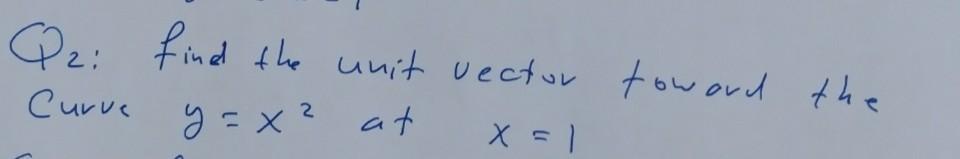 Q2: find the unit vector toward the
Curve y = x² at x = 1